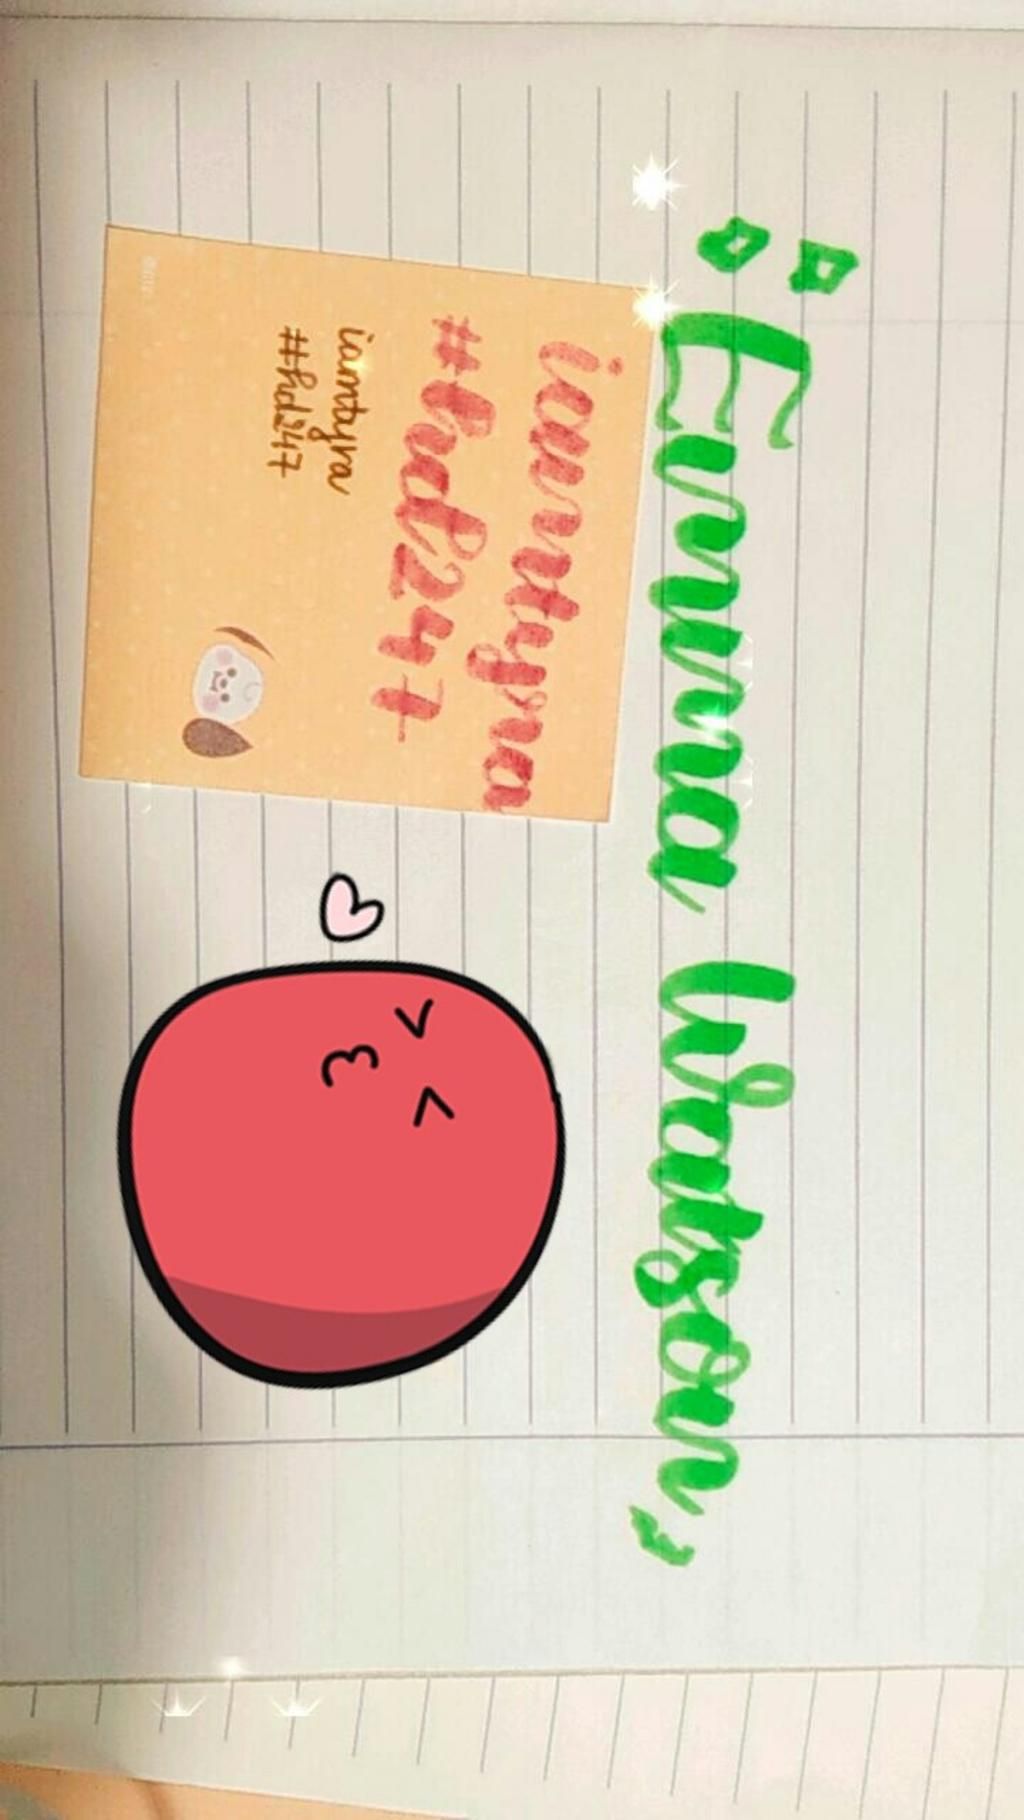 : Emma Watson,
iamtyra
#hd247
iamtyra
#hd247